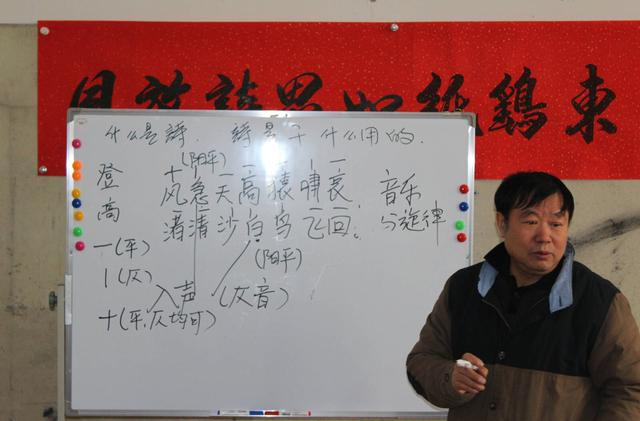 東鷄
什么是詩. 詩是干什么用的.
(阳平)
登 风急天高猿嘯哀. 音乐
高 渚清沙白鸟飞回。 与旋律
一(平) (阳平)
丨(仄) 入声 (仄音)
十(平,仄均可)